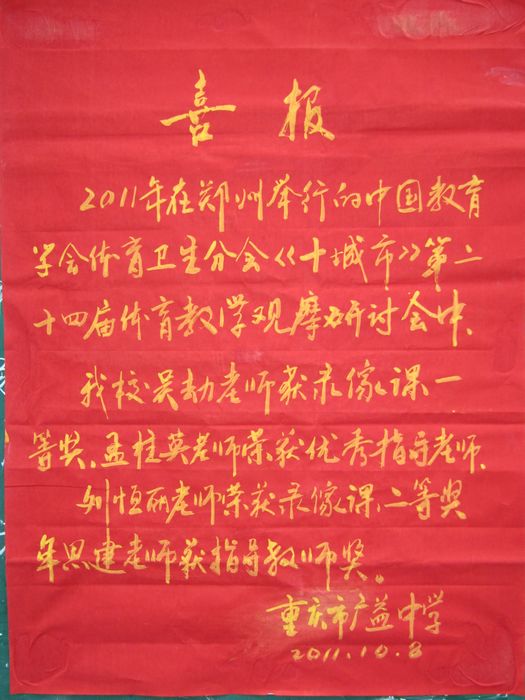 喜报
2011年在郑州举行的中国教育
学会体育卫生分会《十城市》第二
十四届体育教学观摩研讨会中、
我校吴劫老师获录像课一
等奖、孟桂英老师荣获优秀指导老师、
刘恒丽老师荣获录像课二等奖
年思建老师获指导教师奖。
重庆市广益中学
2011.10.8